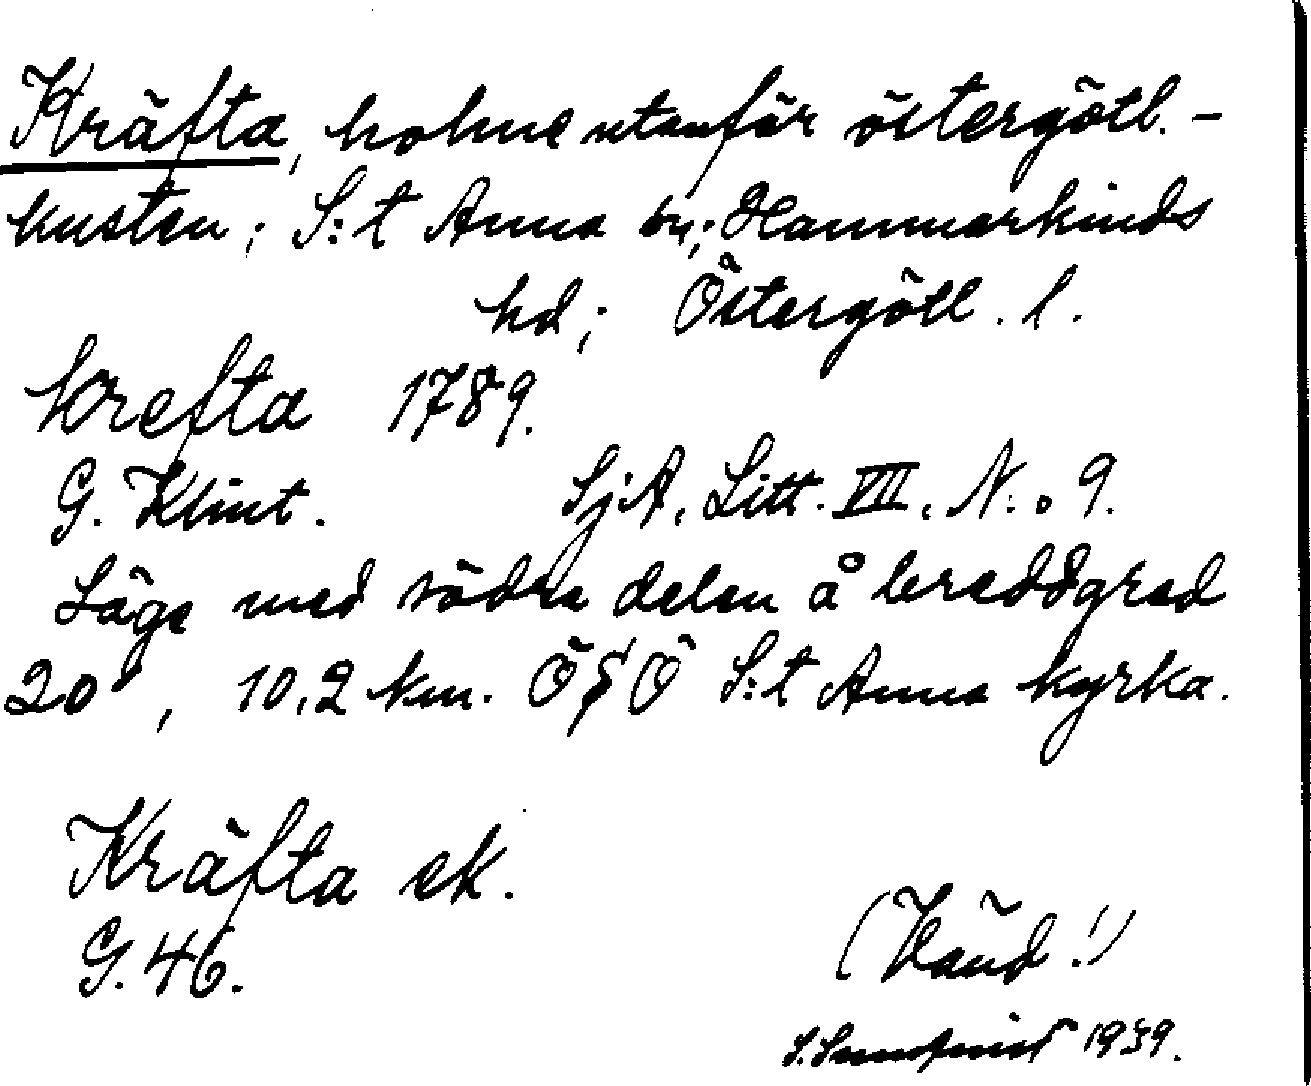 Kräfta, holme utanför östergötl.-
kusten; S:t Anna sn; Hammarkinds
hd; Östergötl. l.
krefta 1789.
G. Klint. SjA, Litt. VIII. N:o 9.
Läge med södra delen å breddgrad
20', 10,2 km. ÖSÖ S:t Anna kyrka.
Kräfta ek.
G. 46.
(Vänd!)
S. Sundqvist 1939.